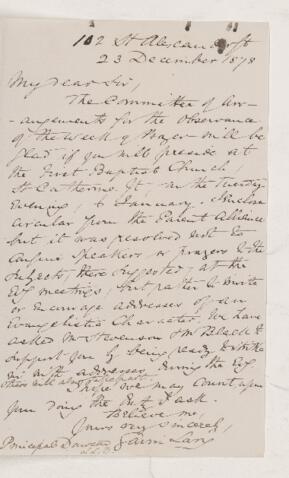 102 St Alexander St
23 December 1878
My dear Sir,
The Committee of Arr-
-angements for the observance
of the Week of Prayer will be
glad if you will preside at
the First Baptist Church
St Catherine St on the Tuesday
Evening January. I enclose
circular from the Parent Alliance
but it was resolved not to
confine speakers or prayers to the
subjects there suggested, at the
Evg meetings, but rather to invite
or encourage addresses of an
Evangelistic Character. We have
asked Mr Stevenson & Mr Black to
support you by being ready to
with addresses during the Evg
Others will also participate.
Hope we may count upon
you doing the part I ask.
Believe me,
Yours very sincerely,
Principal Dawson
LL.D.